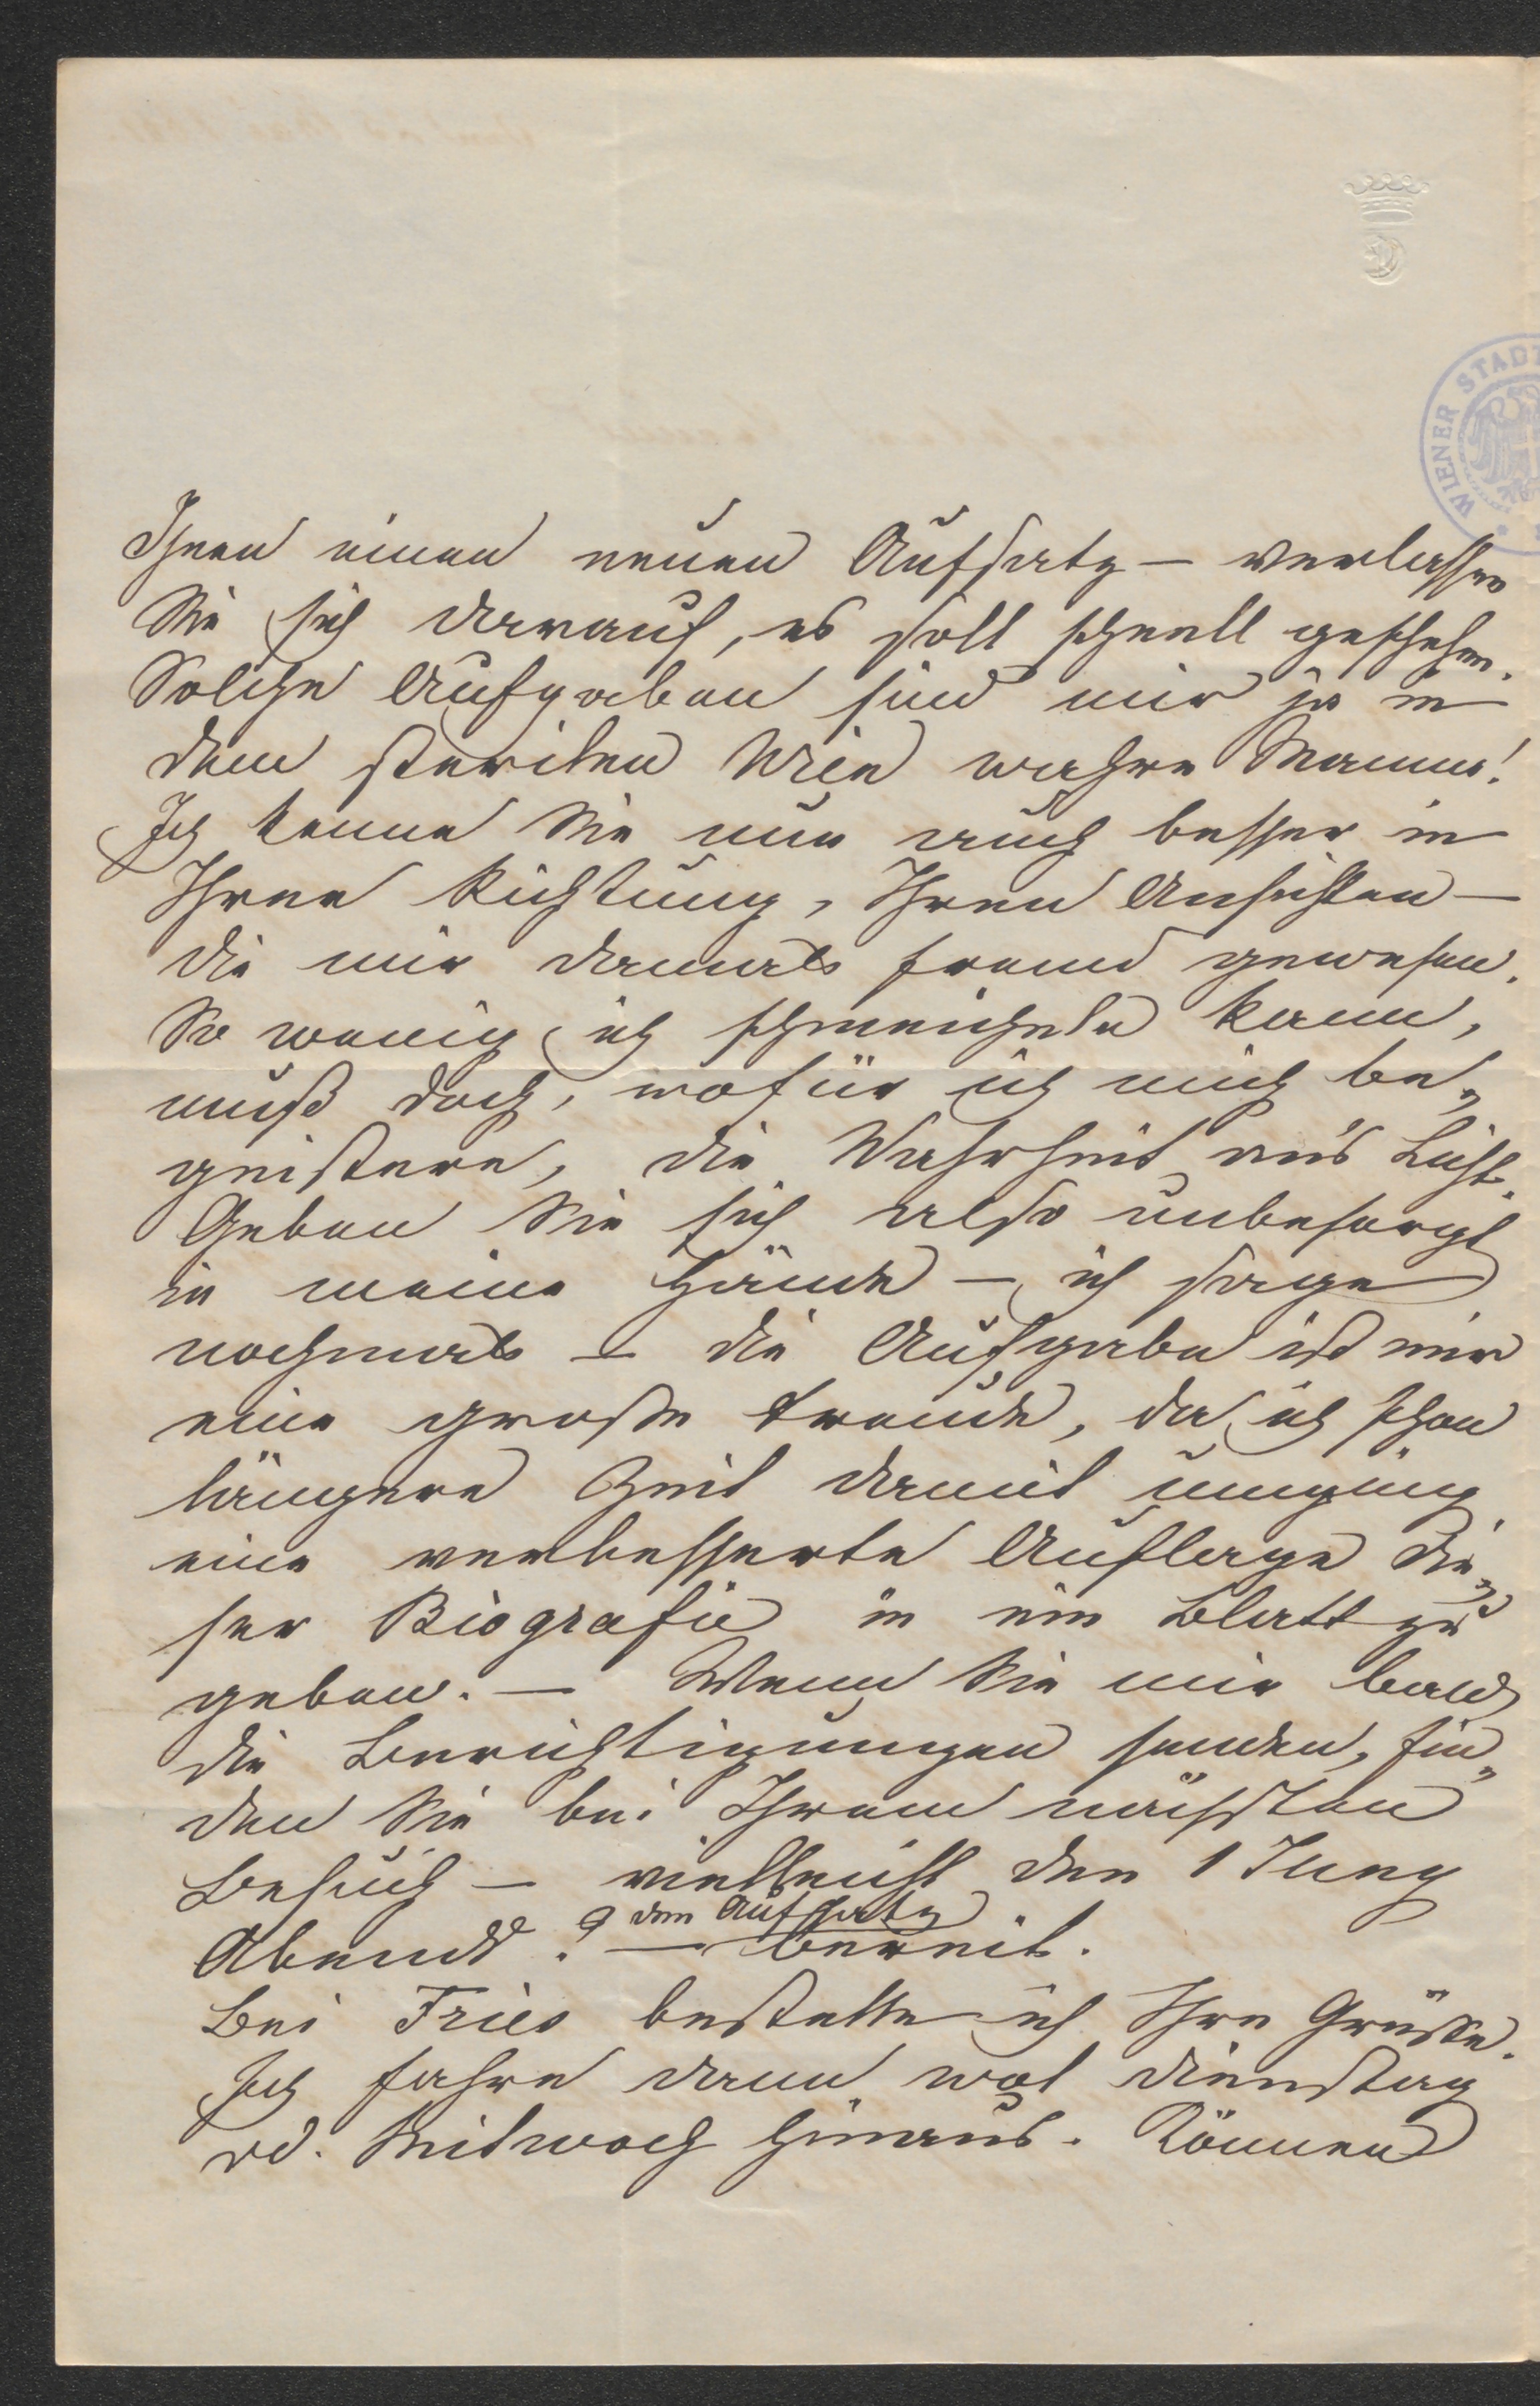 WIENER STADT
Ihnen einen neuen Aufsatz – verlassen
Sie sich darauf, es soll schnell geschehen.
Solche Aufgaben sind mir ja in
dem sterilen Wien wahre Manna!
Ich kenne Sie nun auch besser in
Ihrer Richtung, Ihren Ansichten –
die mir damals fremd gewesen.
So wenig ich schmeicheln kann,
muß doch, wofür ich mich be„
geistere, die Wahrheit an's Licht.
Geben Sie sich also unbesorgt
in meine Hände – ich sage
nochmals – die Aufgabe ist mir
eine große Freude, da ich schon
längere Zeit damit umging
eine verbesserte Auflage die„
ser Biografie in ein Blatt zu
geben. – Wenn Sie mir bald
die Berichtigungen senden, fin„
den Sie bei Ihrem nächsten
Besuch – vielleicht den 1 Juny
den Aufsatz
Abends? – bereit.
Bei Fries bestelle ich Ihre Grüße.
Ich fahre dann wol Dienstag
od. Mitwoch hinaus. Können